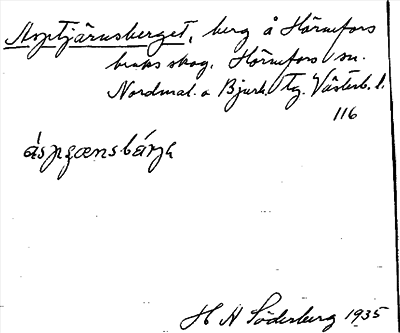 Asptjärnsberget, berg å Hörnefors
bruks skog, Hörnefors sn.
Nordmal. o Bjurh. tg. Västerb. l.
116
H N Söderberg 1935